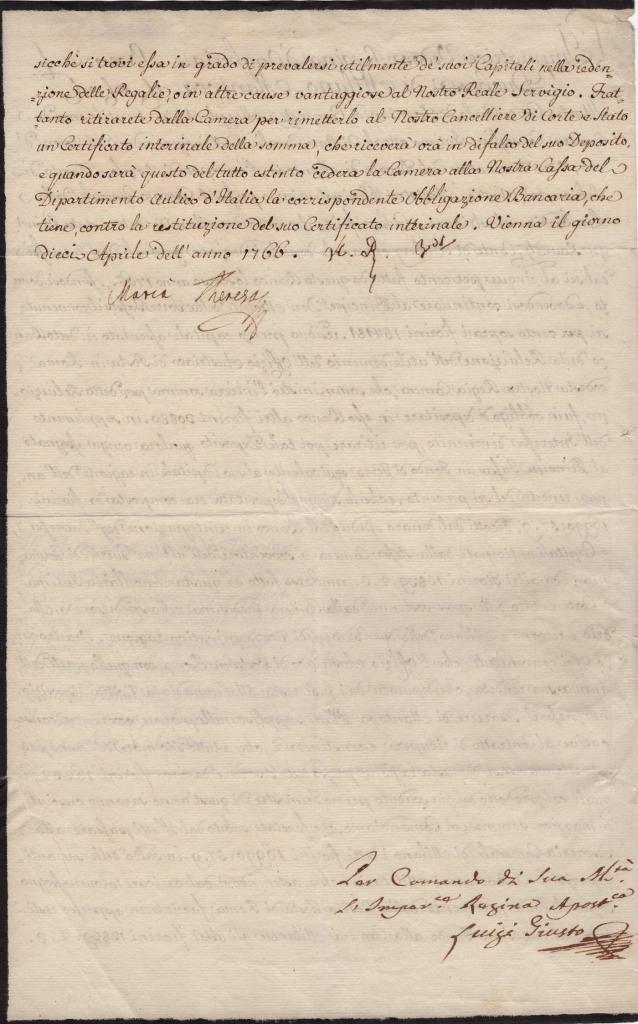 sicchè si trovi essa in grado di prevalersi utilmente de' suoi Capitali nella reden-
zione delle Regalie, o in altre cause vantaggiose al Nostro Reale Servigio. Frat-
tanto ritirarete dalla Camera, per rimetterlo al Nostro Cancelliere di Corte e Stato
un Certificato interinale della somma, che riceverà orà in difalco del suo Deposito,
e quando sarà questo del tutto estinto cederà la Camera alla Nostra Cassa del
Dipartimento Aulico d'Italia la corrispondente Obbligazione Bancaria, che
tiene, contro la restituzione del suo Certificato interinale. Vienna il giorno
dieci Aprile dell'anno 1766.
Maria Theresa
Per Comando di Sua M.tà
L'Imper.ce Regina Apost.ca
Luigi Giusto